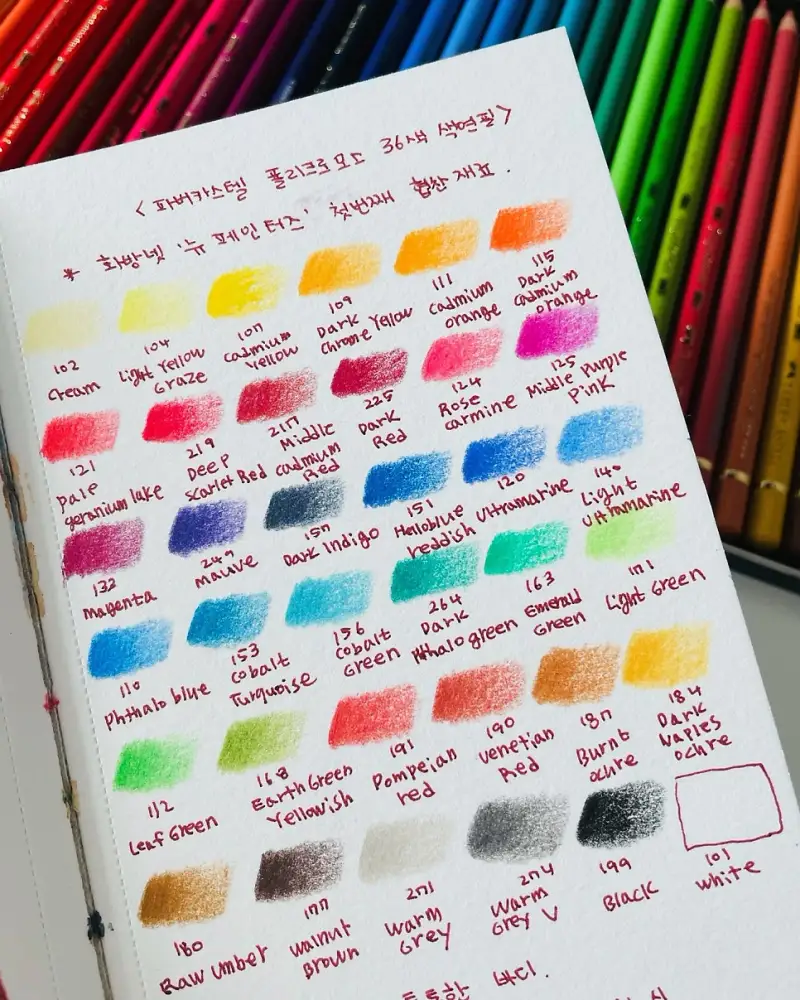 < 파버카스텔 폴리크로모스 36색 색연필 >
* 화방넷 '뉴 페인터즈' 첫번째 협찬 재료.
102 104 107 109 111 115
Cream Light Yellow Glaze Cadmium Yellow Dark Chrome Yellow Cadmium Orange Dark Cadmium Orange
121 219 217 225 124 125
Pale geranium lake Deep Scarlet Red Middle Cadmium Red Dark Red Rose Carmine Middle Purple Pink
132 249 157 151 120 140
Magenta Mauve Dark Indigo Helioblue reddish Ultramarine Light Ultramarine
110 153 156 264 163 171
Phthalo blue Cobalt Turquoise Cobalt Green Dark Phthalo green Emerald Green Light Green
112 168 191 190 187 184
Leaf Green Earth Green Yellowish Pompeian red Venetian Red Burnt ochre Dark Naples ochre
180 177 271 274 199 101
Raw Umber Walnut Brown Warm Grey Warm Grey V Black White
바디.